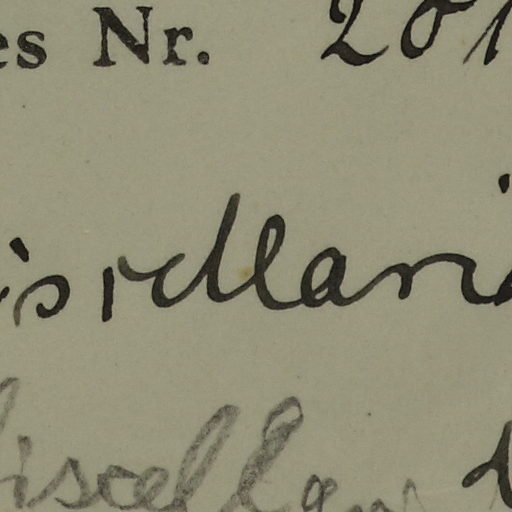 es Nr. 201
iscellani
iscellan